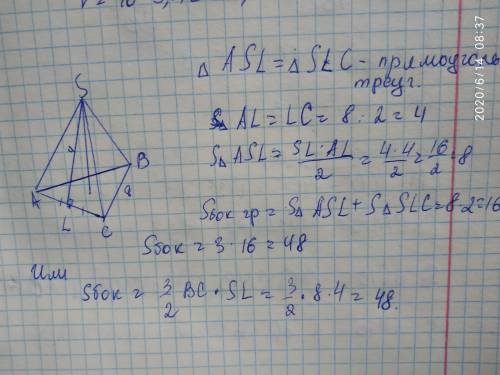 △ ASL = △ SLC - прямоугольн
треуг.
AL = LC = 8 : 2 = 4
S△ ASL = SL · AL / 2 = 4 · 4 / 2 = 16 / 2 = 8
Sбок гр = S△ ASL + S△ SLC = 8·2=16
Sбок = 3 · 16 = 48
Или
Sбок = 3/2 BC · SL = 3/2 · 8 · 4 = 48.
S
A
B
C
L
8
2020/6/14 08:37